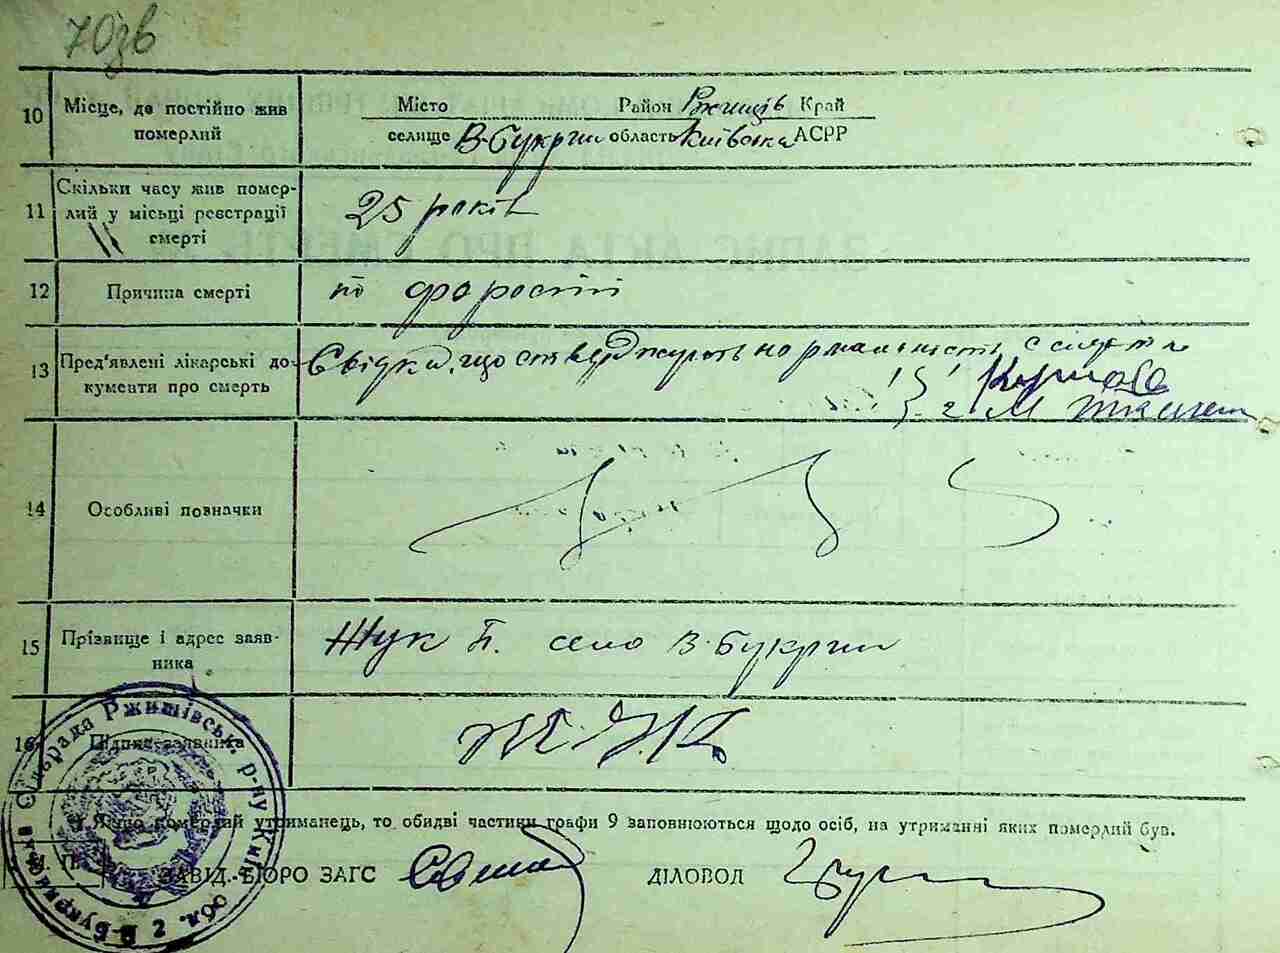 70зв
10 Місце, де постійно жив померлий
Місто Район Ржищів Край
селище В-Букрин область Київська АСРР
11 Скільки часу жив помер-
лий у місці реєстрації
смерті
25 років
12 Причина смерті
по
13 Пред'явлені лікарські до-
кументи про смерть
Свідки, що стверджують нормальність смерти
2 М
14 Особливі позначки
15 Прізвище і адрес заяв-
ника
Жук П. село В-Букрин
16 Підпис заявника
Якщо померлий утриманець, то обидві частини графи 9 заповнюються щодо осіб, на утриманні яких померлий був.
М. П.
ЗАВІД. БЮРО ЗАГС
ДІЛОВОД
Сільрада Ржищівськ. р-ну Київ. обл. 2 В-Букринська